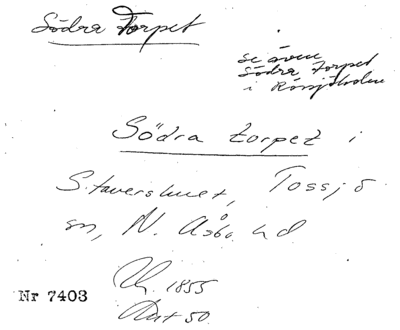 Södra Torpet
se även
Södra Torpet
i Rössjöholm
Södra torpet i
Stavershult, Tossjö
sn, N. Åsbo hd
Uh. 1855
Nr 7403
Avt 50